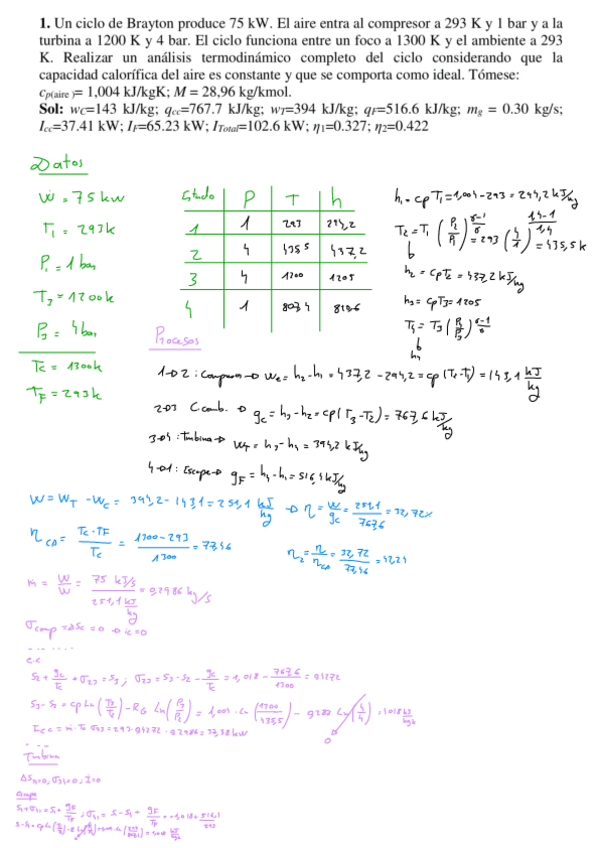 1. Un ciclo de Brayton produce 75 kW. El aire entra al compresor a 293 K y 1 bar y a la
turbina a 1200 K y 4 bar. El ciclo funciona entre un foco a 1300 K y el ambiente a 293
K. Realizar un análisis termodinámico completo del ciclo considerando que la
capacidad calorífica del aire es constante y que se comporta como ideal. Tómese:
cp(aire )= 1,004 kJ/kgK; M = 28,96 kg/kmol.
Sol: wC=143 kJ/kg; qcc=767.7 kJ/kg; wT=394 kJ/kg; qF=516.6 kJ/kg; mg = 0.30 kg/s;
Icc=37.41 kW; IF=65.23 kW; ITotal=102.6 kW; η1=0.327; η2=0.422
Datos
Ẇ = 75 kW
T1 = 293k
P1 = 1 bar
T3 = 1200k
P3 = 4 bar
Tc = 1300k
TF = 293k
Estado P T h
1 1 293 294,2
2 4 435,5 437,2
3 4 1200 1205
4 1 807,4
h1 = cp T1 = 1,004 - 293 = 294,2 kJ/kg
T2 = T1 (P2/P1)^γ-1/γ = 293 (4/1)^1,4-1/1,4 = 435,5k
h2 = cp T2 = 437,2 kJ/kg
h3 = cp T3 = 1205
h4
Procesos
1→2 : Compresor → wc = h2-h1 = 437,2 - 294,2 = cp (T2-T1) = 143,1 kJ/kg
2→3 C.comb. → qc = h3-h2 = cp (T3-T2) = 767,6 kJ/kg
3→4 : Turbina → wT = h3-h4 = 394,2 kJ/kg
4→1 : Escape → qF = h4-h1 = 516,4 kJ/kg
W = WT - Wc = 394,2 - 143,1 = 251,1 kJ/kg → η = W/qc = 251,1/767,6 = 32,72%
ηCA = Tc-TF/Tc = 1300-293/1300 = 77,46
η2 = η/ηCA = 32,72/77,46 = 42,24
ṁ = Ẇ/W = 75 kJ/s / 251,1 kJ/kg = 0,2986 kg/s
σcomp = ΔSc = 0 → ic = 0
c.c
S2 + qc/Tc + σ23 = S3 ; σ23 = S3-S2 - qc/Tc = 1,018 - 767,6/1300 = 0,4272
Turbina
Escape